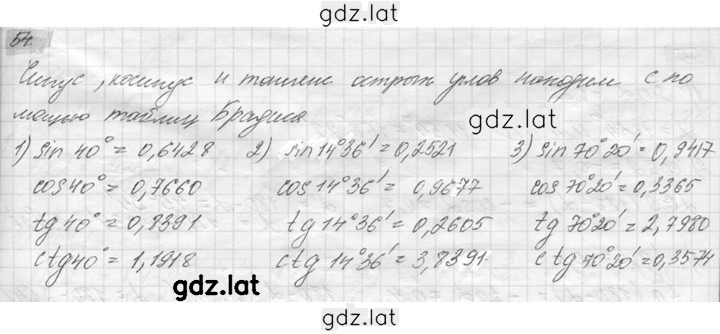 gdz.lat
54
Синус, косинус и тангенс острых углов находим с по
мощью таблиц Брадиса
gdz.lat
1) sin 40° = 0,6428 2) sin 14°36' = 0,2521 3) sin 70°20' = 0,9417
cos 40° = 0,7660 cos 14°36' = 0,9677 cos 70°20' = 0,3365
tg 40° = 0,8391 tg 14°36' = 0,2605 tg 70°20' = 2,7980
ctg 40° = 1,1918 ctg 14°36' = 3,8391 ctg 70°20' = 0,3574
gdz.lat
gdz.lat